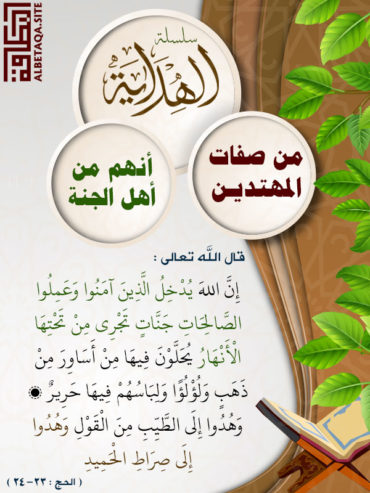 البطاقة
ALBETAQA.SITE
سلسلة
الهداية
من صفات
المهتدين
أنهم من
أهل الجنة
قال الله تعالى :
إِنَّ اللهَ يُدْخِلُ الَّذِينَ آمَنُوا وَعَمِلُوا
الصَّالِحَاتِ جَنَّاتٍ تَجْرِي مِنْ تَحْتِهَا
الْأَنْهَارُ يُحَلَّوْنَ فِيهَا مِنْ أَسَاوِرَ مِنْ
ذَهَبٍ وَلُؤْلُؤًا وَلِبَاسُهُمْ فِيهَا حَرِيرٌ
وَهُدُوا إِلَى الطَّيِّبِ مِنَ الْقَوْلِ وَهُدُوا
إِلَى صِرَاطِ الْحَمِيدِ
( الحج : ٢٣-٢٤ )